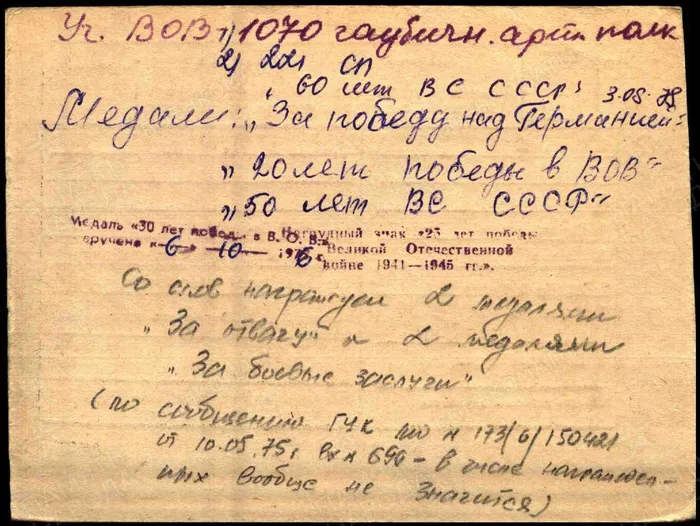 Уч. ВОВ 1) 1070 гаубичн. арт. полк
2) 221 СП
„ 60 лет ВС СССР" 3.05.78
Медали: „За победу над Германией"
„20 лет победы в ВОВ"
„50 лет ВС СССР"
Медаль «30 лет победы в В. О. В.» Нагрудный знак «25 лет победы
вручена «6» 10 1976 г. Великой Отечественной
войне 1941—1945 гг.».
Со слов награжден 2 медалями
„За отвагу" и 2 медалями
„За боевые заслуги"
(по сообщению ГУК МО № 173/6/150421
от 10.05.75г. Вх № 696 - в числе награжден-
ных вообще не значится)